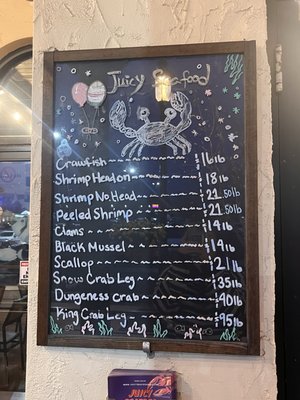 Juicy Seafood
Crawfish $16lb
Shrimp Head on $18lb
Shrimp No Head $21.50lb
Peeled Shrimp $21.50lb
Clams $14lb
Black Mussel $14lb
Scallop $21lb
Snow Crab Leg $35lb
Dungeness Crab $40lb
King Crab Leg $95lb
JUICY